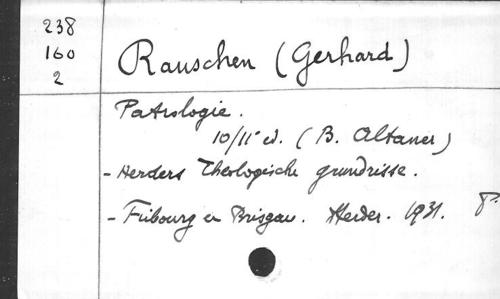 238
160
2
Rauschen (Gerhard)
Patrologie.
10/11 ed. (B. Altaner)
- Herders Theologische grundrisse.
- Fribourg en Brisgau. Herder. 1931. 8°